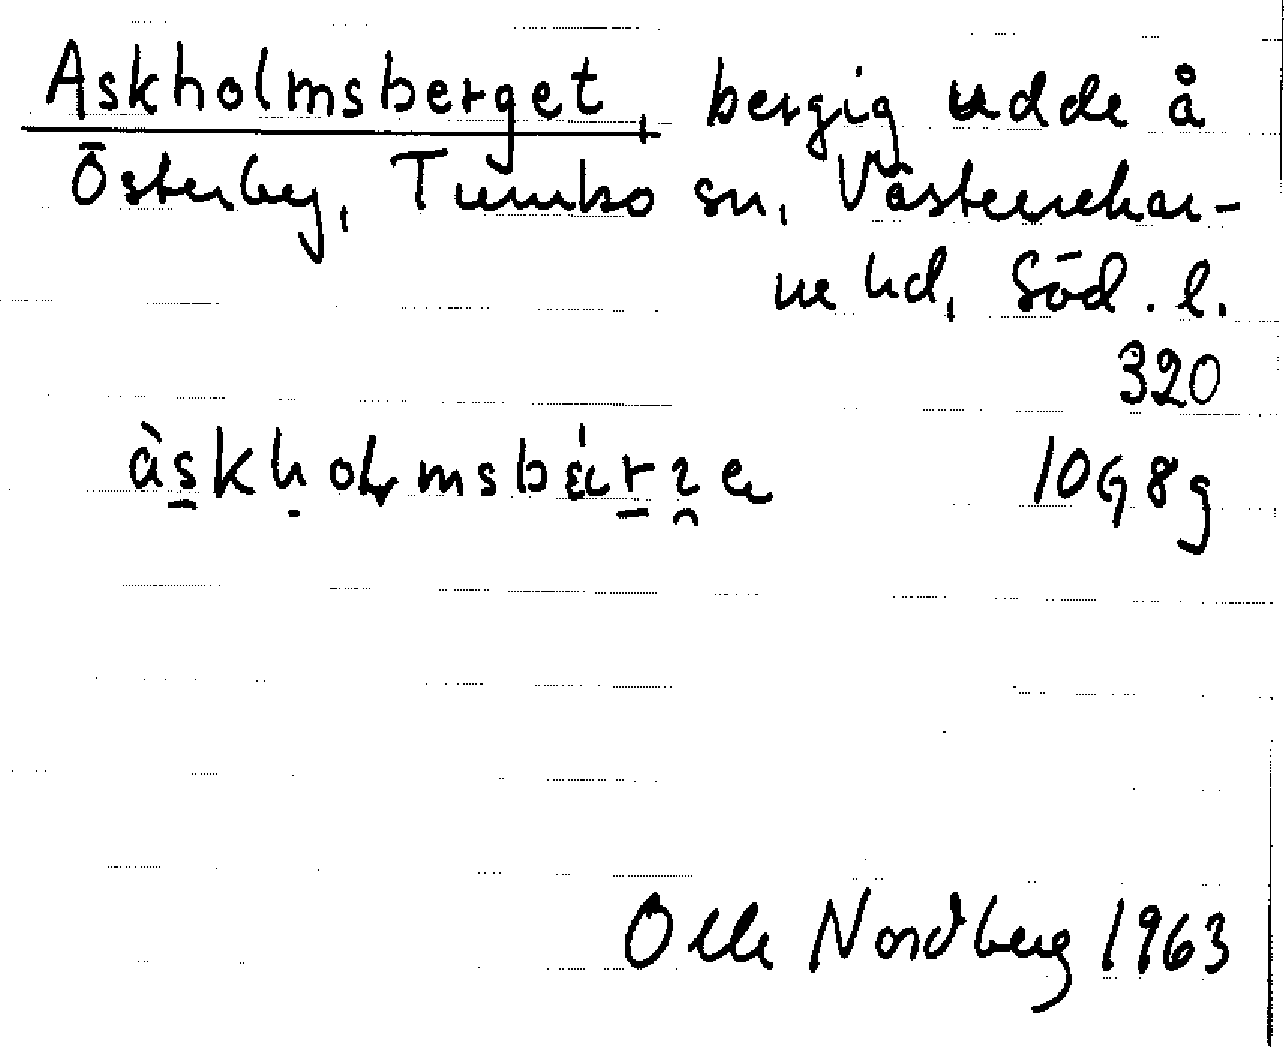 Askholmsberget, bergig udde å
Österby, Tumbo sn, Västerrekar-
ne hd, Söd. l.
320
10G8g
Olle Nordberg 1963